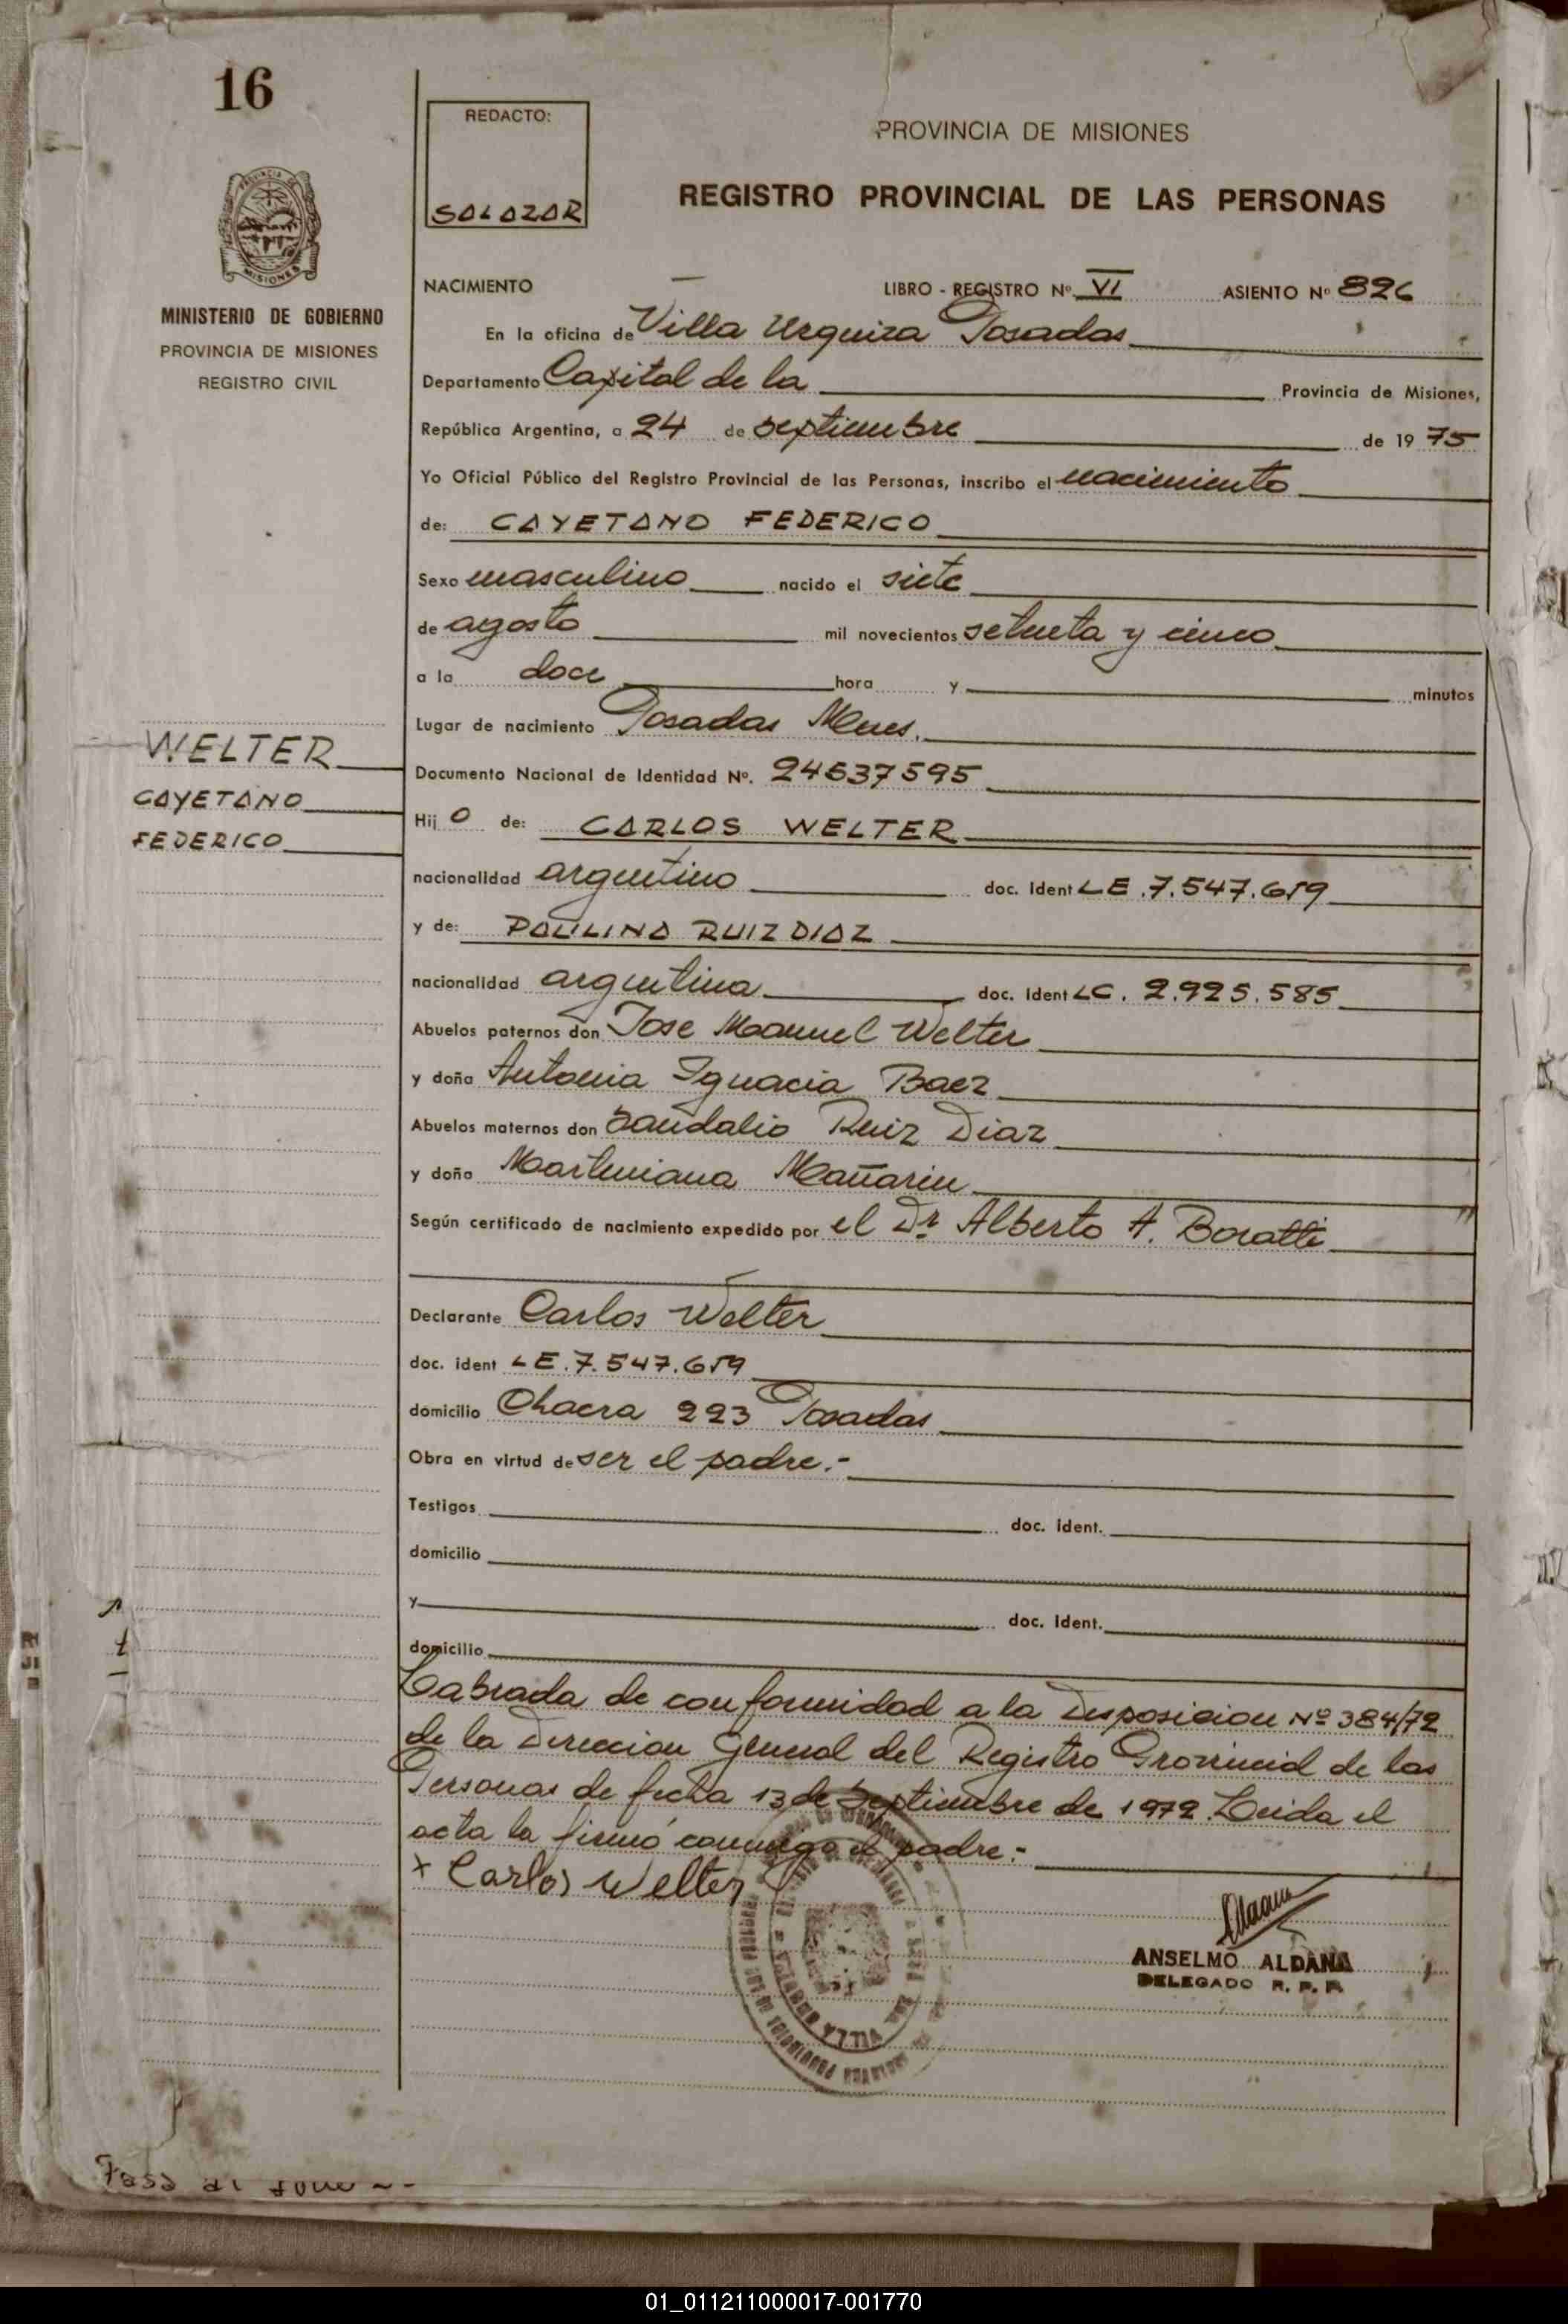 16
REDACTO:
SALAZAR
PROVINCIA DE MISIONES
REGISTRO PROVINCIAL DE LAS PERSONAS
PROVINCIA DE
MISIONES
MINISTERIO DE GOBIERNO
PROVINCIA DE MISIONES
REGISTRO CIVIL
NACIMIENTO LIBRO - REGISTRO Nº VI ASIENTO Nº 826
En la oficina de Villa Urquiza Posadas
Departamento Capital de la Provincia de Misiones,
República Argentina, a 24 de septiembre de 19 75
Yo Oficial Público del Registro Provincial de las Personas, inscribo el nacimiento
de: CAYETANO FEDERICO
Sexo masculino nacido el siete
de agosto mil novecientos setenta y cinco
a la doce hora y minutos
Lugar de nacimiento Posadas Mnes.
WELTER
CAYETANO
FEDERICO
Documento Nacional de Identidad Nº. 24637595
Hij o de: CARLOS WELTER
nacionalidad argentino doc. Ident LE.7.547.659
y de: PAULINA RUIZ DIAZ
nacionalidad argentina doc. Ident LC. 2.925.585
Abuelos paternos don Jose Manuel Welter
y doña Antonia Ignacia Baez
Abuelos maternos don Sandalio Ruiz Diaz
y doña Marteniana
Según certificado de nacimiento expedido por el Dr. Alberto A. Boratti
Declarante Carlos Welter
doc. ident LE.7.547.659
domicilio Chacra 223 Posadas
Obra en virtud de ser el padre.-
Testigos doc. ident.
domicilio
y doc. Ident.
domicilio
Labrada de conformidad a la Disposicion Nº 384/72
de la Direccion General del Registro Provincial de las
Personas de fecha 13 de Septiembre de 1972 Leida el
acta la firmó conmigo el padre.-
x Carlos Welter
ANSELMO ALDANA
DELEGADO R. P. P.
01_011211000017-001770